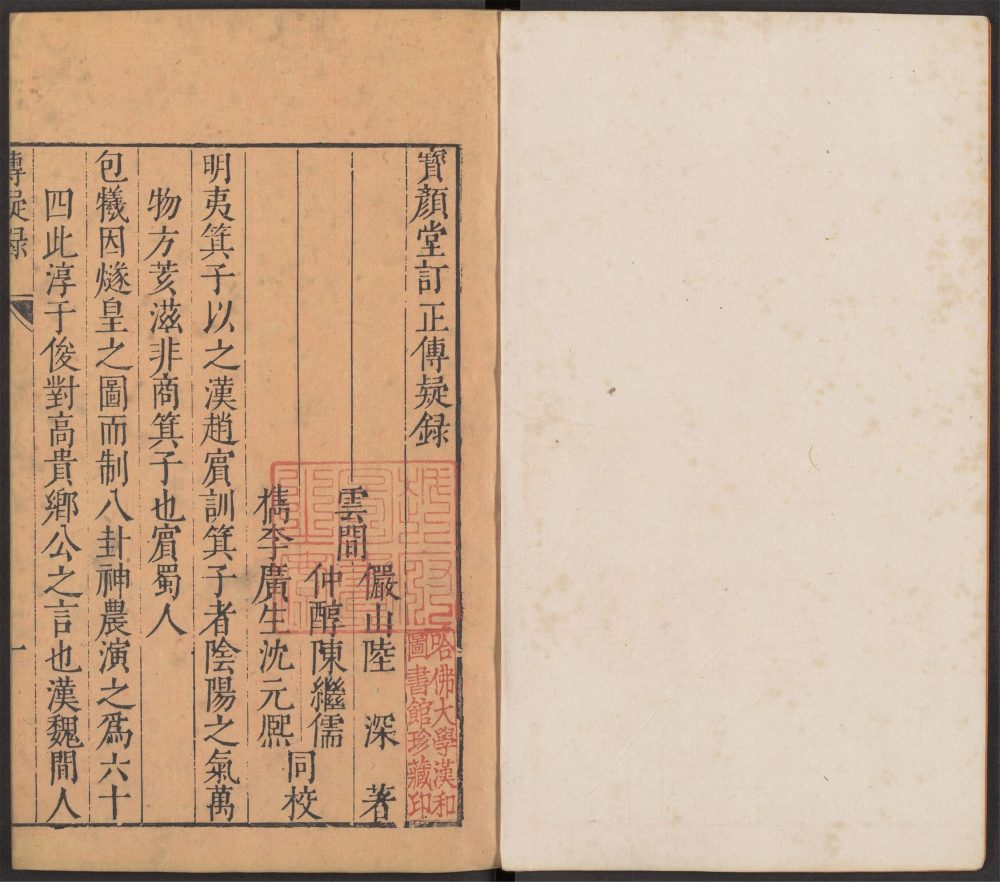 寳顏堂訂正傳疑録
雲間
儼山陸深著
仲醇陳繼儒
檇李廣生沈元熈
同校
明夷箕子以之漢趙賔訓箕子者陰陽之氣萬
物方荄滋非商箕子也賔蜀人
包犧因燧皇之圖而制八卦神農演之爲六十
四此淳于俊對高貴鄉公之言也漢魏間人
傳疑録
一
哈佛大學漢和
圖書館珍藏印